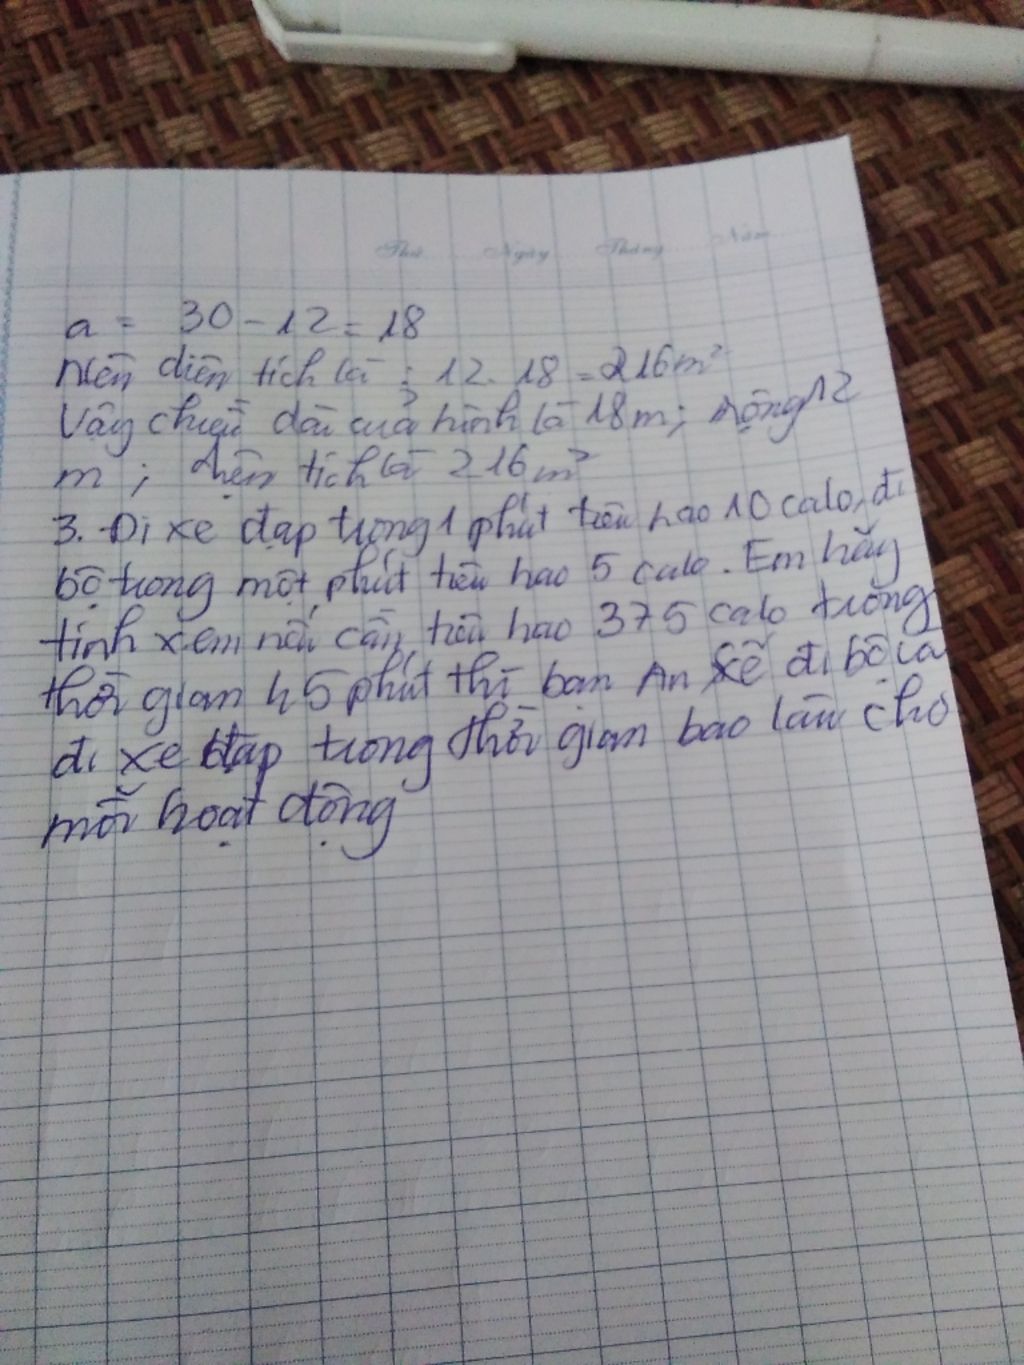 Thứ Ngày Tháng Năm
a = 30 - 12 = 18
nên diện tích là : 12. 18 = 216m²
Vậy chiều dài của hình là 18m; rộng 12
m ; diện tích là 216m²
3. Đi xe đạp trong 1 phút tiêu hao 10 calo, đi
bộ trong một phút tiêu hao 5 calo. Em hãy
tính xem nếu cần tiêu hao 375 calo trong
thời gian 45 phút thì bạn An sẽ đi bộ và
đi xe đạp trong thời gian bao lâu cho
mỗi hoạt động